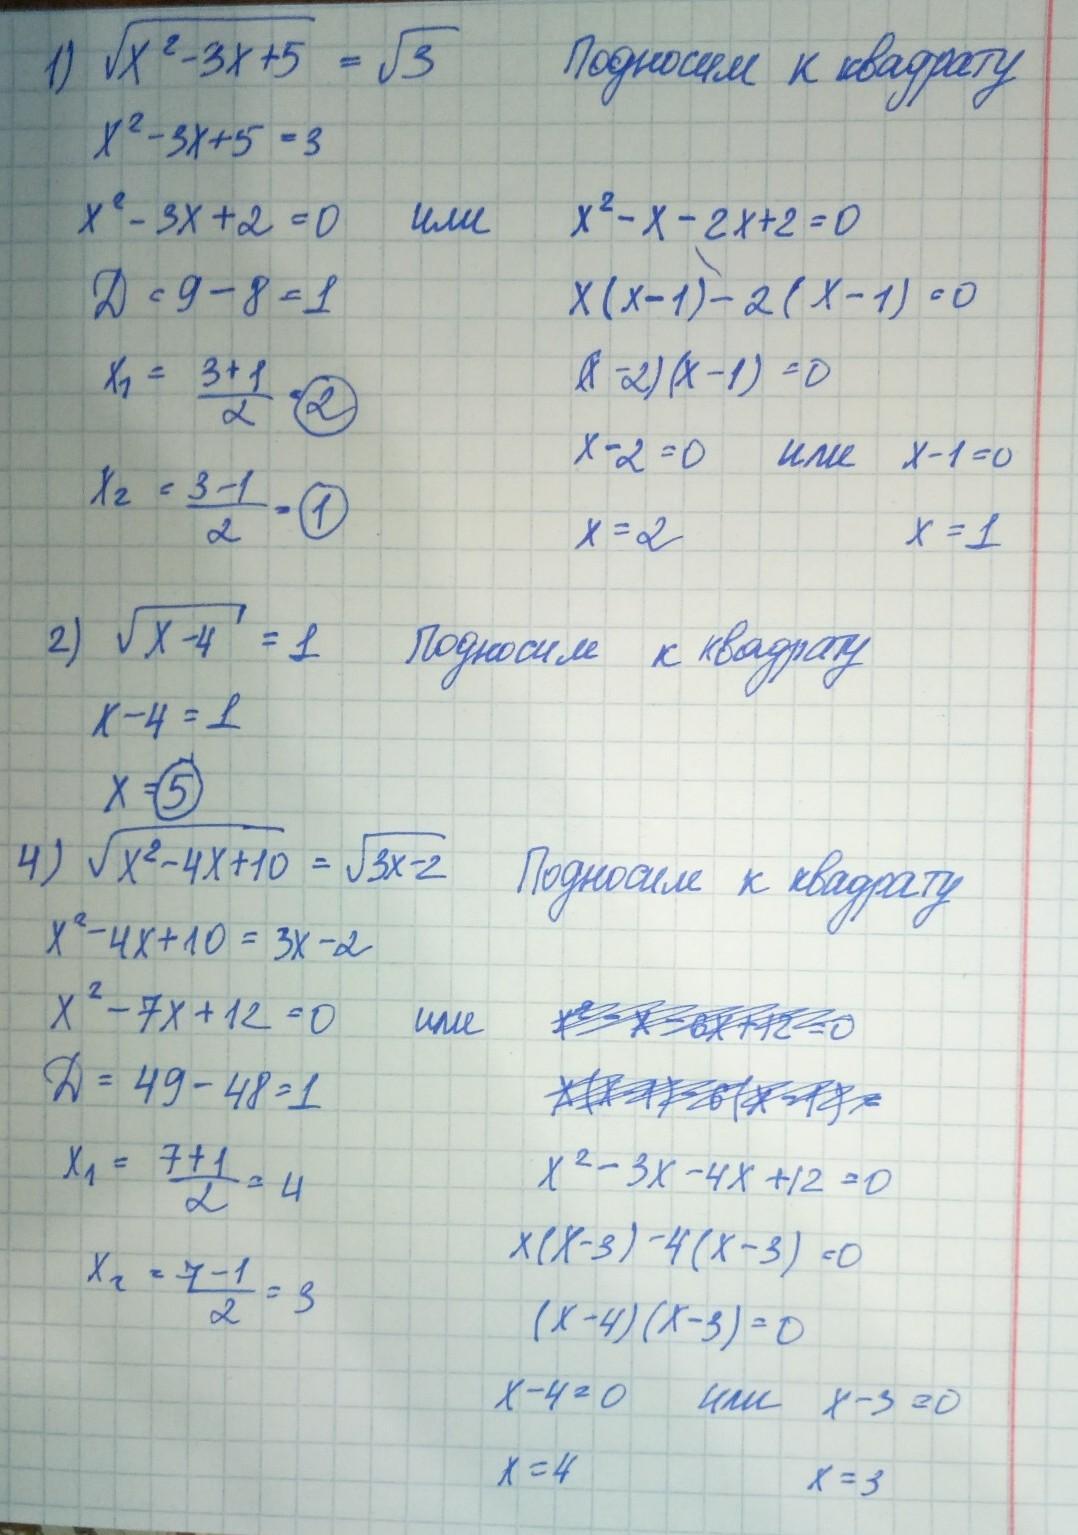 1) √x²-3x+5 = √3 Подносим к квадрату
x²-3x+5 = 3
x²-3x+2=0 или x²-x-2x+2=0
D=9-8=1 x(x-1)-2(x-1)=0
x₁ = 3+1/2 = 2 (x-2)(x-1)=0
x-2=0 или x-1=0
x₂ = 3-1/2 = 1 x=2 x=1
2) √x-4 = 1 Подносим к квадрату
x-4=1
x=5
4) √x²-4x+10 = √3x-2 Подносим к квадрату
x²-4x+10=3x-2
x²-7x+12=0 или x²-x-6x+12=0
D=49-48=1
x₁ = 7+1/2 = 4 x²-3x-4x+12=0
x(x-3)-4(x-3)=0
x₂ = 7-1/2 = 3 (x-4)(x-3)=0
x-4=0 или x-3=0
x=4 x=3